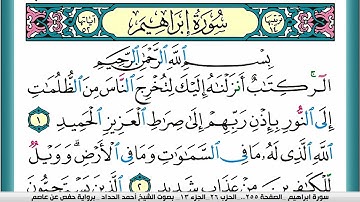 سُورَةُ إِبْرَاهِيمَ
بِسْمِ اللَّهِ الرَّحْمَٰنِ الرَّحِيمِ
الٓر ۚ كِتَابٌ أَنزَلْنَاهُ إِلَيْكَ لِتُخْرِجَ النَّاسَ مِنَ الظُّلُمَاتِ
إِلَى النُّورِ بِإِذْنِ رَبِّهِمْ إِلَىٰ صِرَاطِ الْعَزِيزِ الْحَمِيدِ ١
اللَّهِ الَّذِي لَهُ مَا فِي السَّمَاوَاتِ وَمَا فِي الْأَرْضِ ۗ وَوَيْلٌ
لِّلْكَافِرِينَ مِنْ عَذَابٍ شَدِيدٍ ٢ الَّذِينَ يَسْتَحِبُّونَ
سورة إبراهيم .. الصفحة ٢٥٥ .. الحزب ٢٦ .. الجزء ١٣ .. بصوت الشيخ أحمد الحداد .. برواية حفص عن عاصم